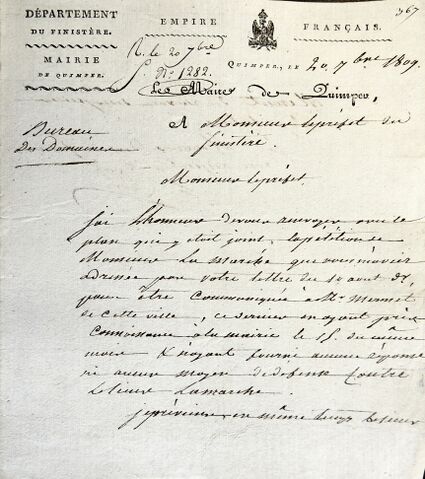 367
DÉPARTEMENT
DU FINISTÈRE.
MAIRIE
DE QUIMPER.
EMPIRE FRANÇAIS.
R. le 20 7bre
No 1282.
QUIMPER, LE 20 7bre 1809.
Le Maire de Quimper,
Bureau
des Domaines
A Monsieur le préfet du
finistère.
Monsieur le préfet.
j'ai l'honneur de vous renvoyer avec le
plan qui y etoit joint, la pétition de
Monsieur La Marche que vous m'aviez
adressée par votre lettre du 10 aout dr,
pour être Communiquée à Mr
de cette ville, ce dernier en ayant pris
Connaissance à la mairie le 15 du même
mois & n'ayant fourni aucune réponse
ni aucun moyen de defense Contre
le sieur Lamarche.
je préviens en même temps le sieur